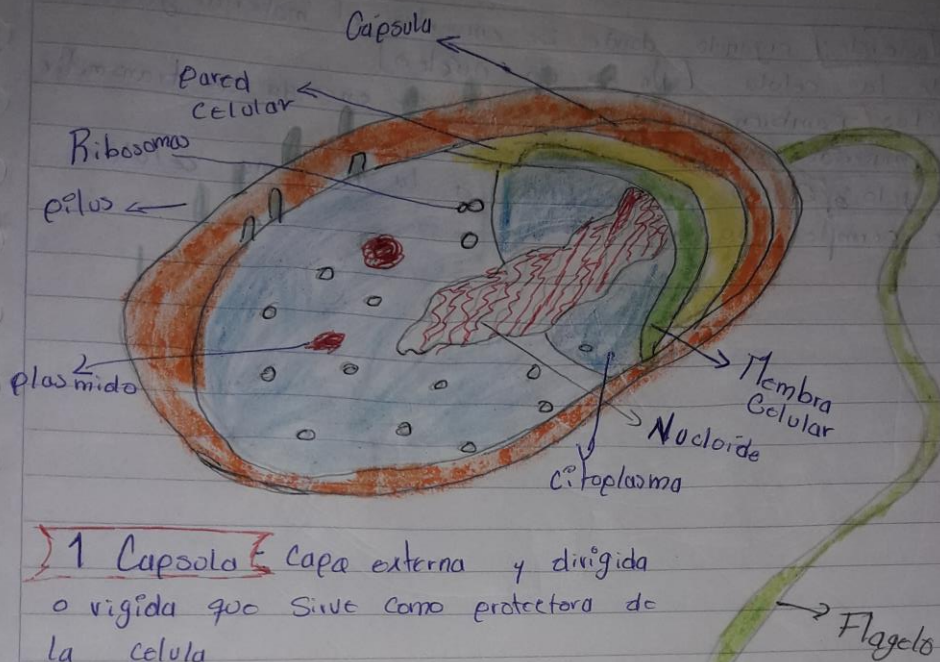 Capsula
Pared
Celular
Ribosomas
pilus
plasmido
Membra
Celular
Nucloide
citoplasma
1 Capsola: Capa externa y dirigida
o rigida que sirve como protectora de
la celula
Flagelo